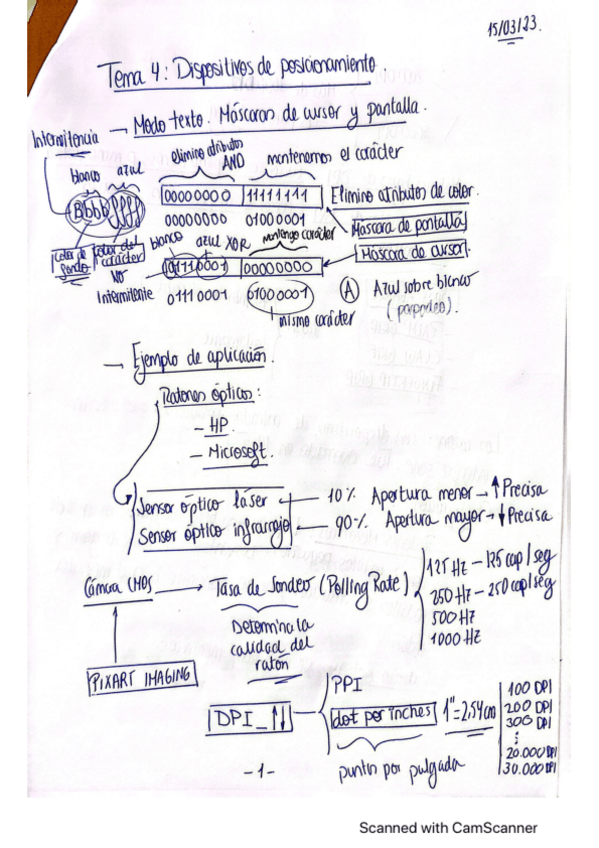 15/03/23.
Tema 4: Dispositivos de posicionamiento.
Intermitencia — Modo texto. Máscaras de cursor y pantalla.
elimino atributos AND mantenemos el carácter
blanco azul
00000000 11111111 Elimino atributos de color.
Bbbb ffff
00000000 01000001 Máscara de pantalla
color de fondo color del carácter blanco azul XOR mantengo carácter Máscara de cursor
NO Intermitente
01110001 00000000
01110001 01000001 A Azul sobre blanco (parpadeo).
mismo carácter
— Ejemplo de aplicación.
Ratones ópticos:
- HP.
- Microsoft.
Sensor óptico láser — 10% Apertura menor → ↑ Precisa
Sensor óptico infrarrojo — 90% Apertura mayor → ↓ Precisa
Cámara CMOS → Tasa de Sondeo (Polling Rate)
125 Hz — 125 cap/seg
250 Hz — 250 cap/seg
500 Hz
1000 Hz
Determina la calidad del ratón
PIXART IMAGING
DPI_↑↓
PPI
dot per inches 1"=2,54cm
puntos por pulgada
100 DPI
200 DPI
300 DPI
⋮
20.000 DPI
30.000 DPI
-1-
Scanned with CamScanner